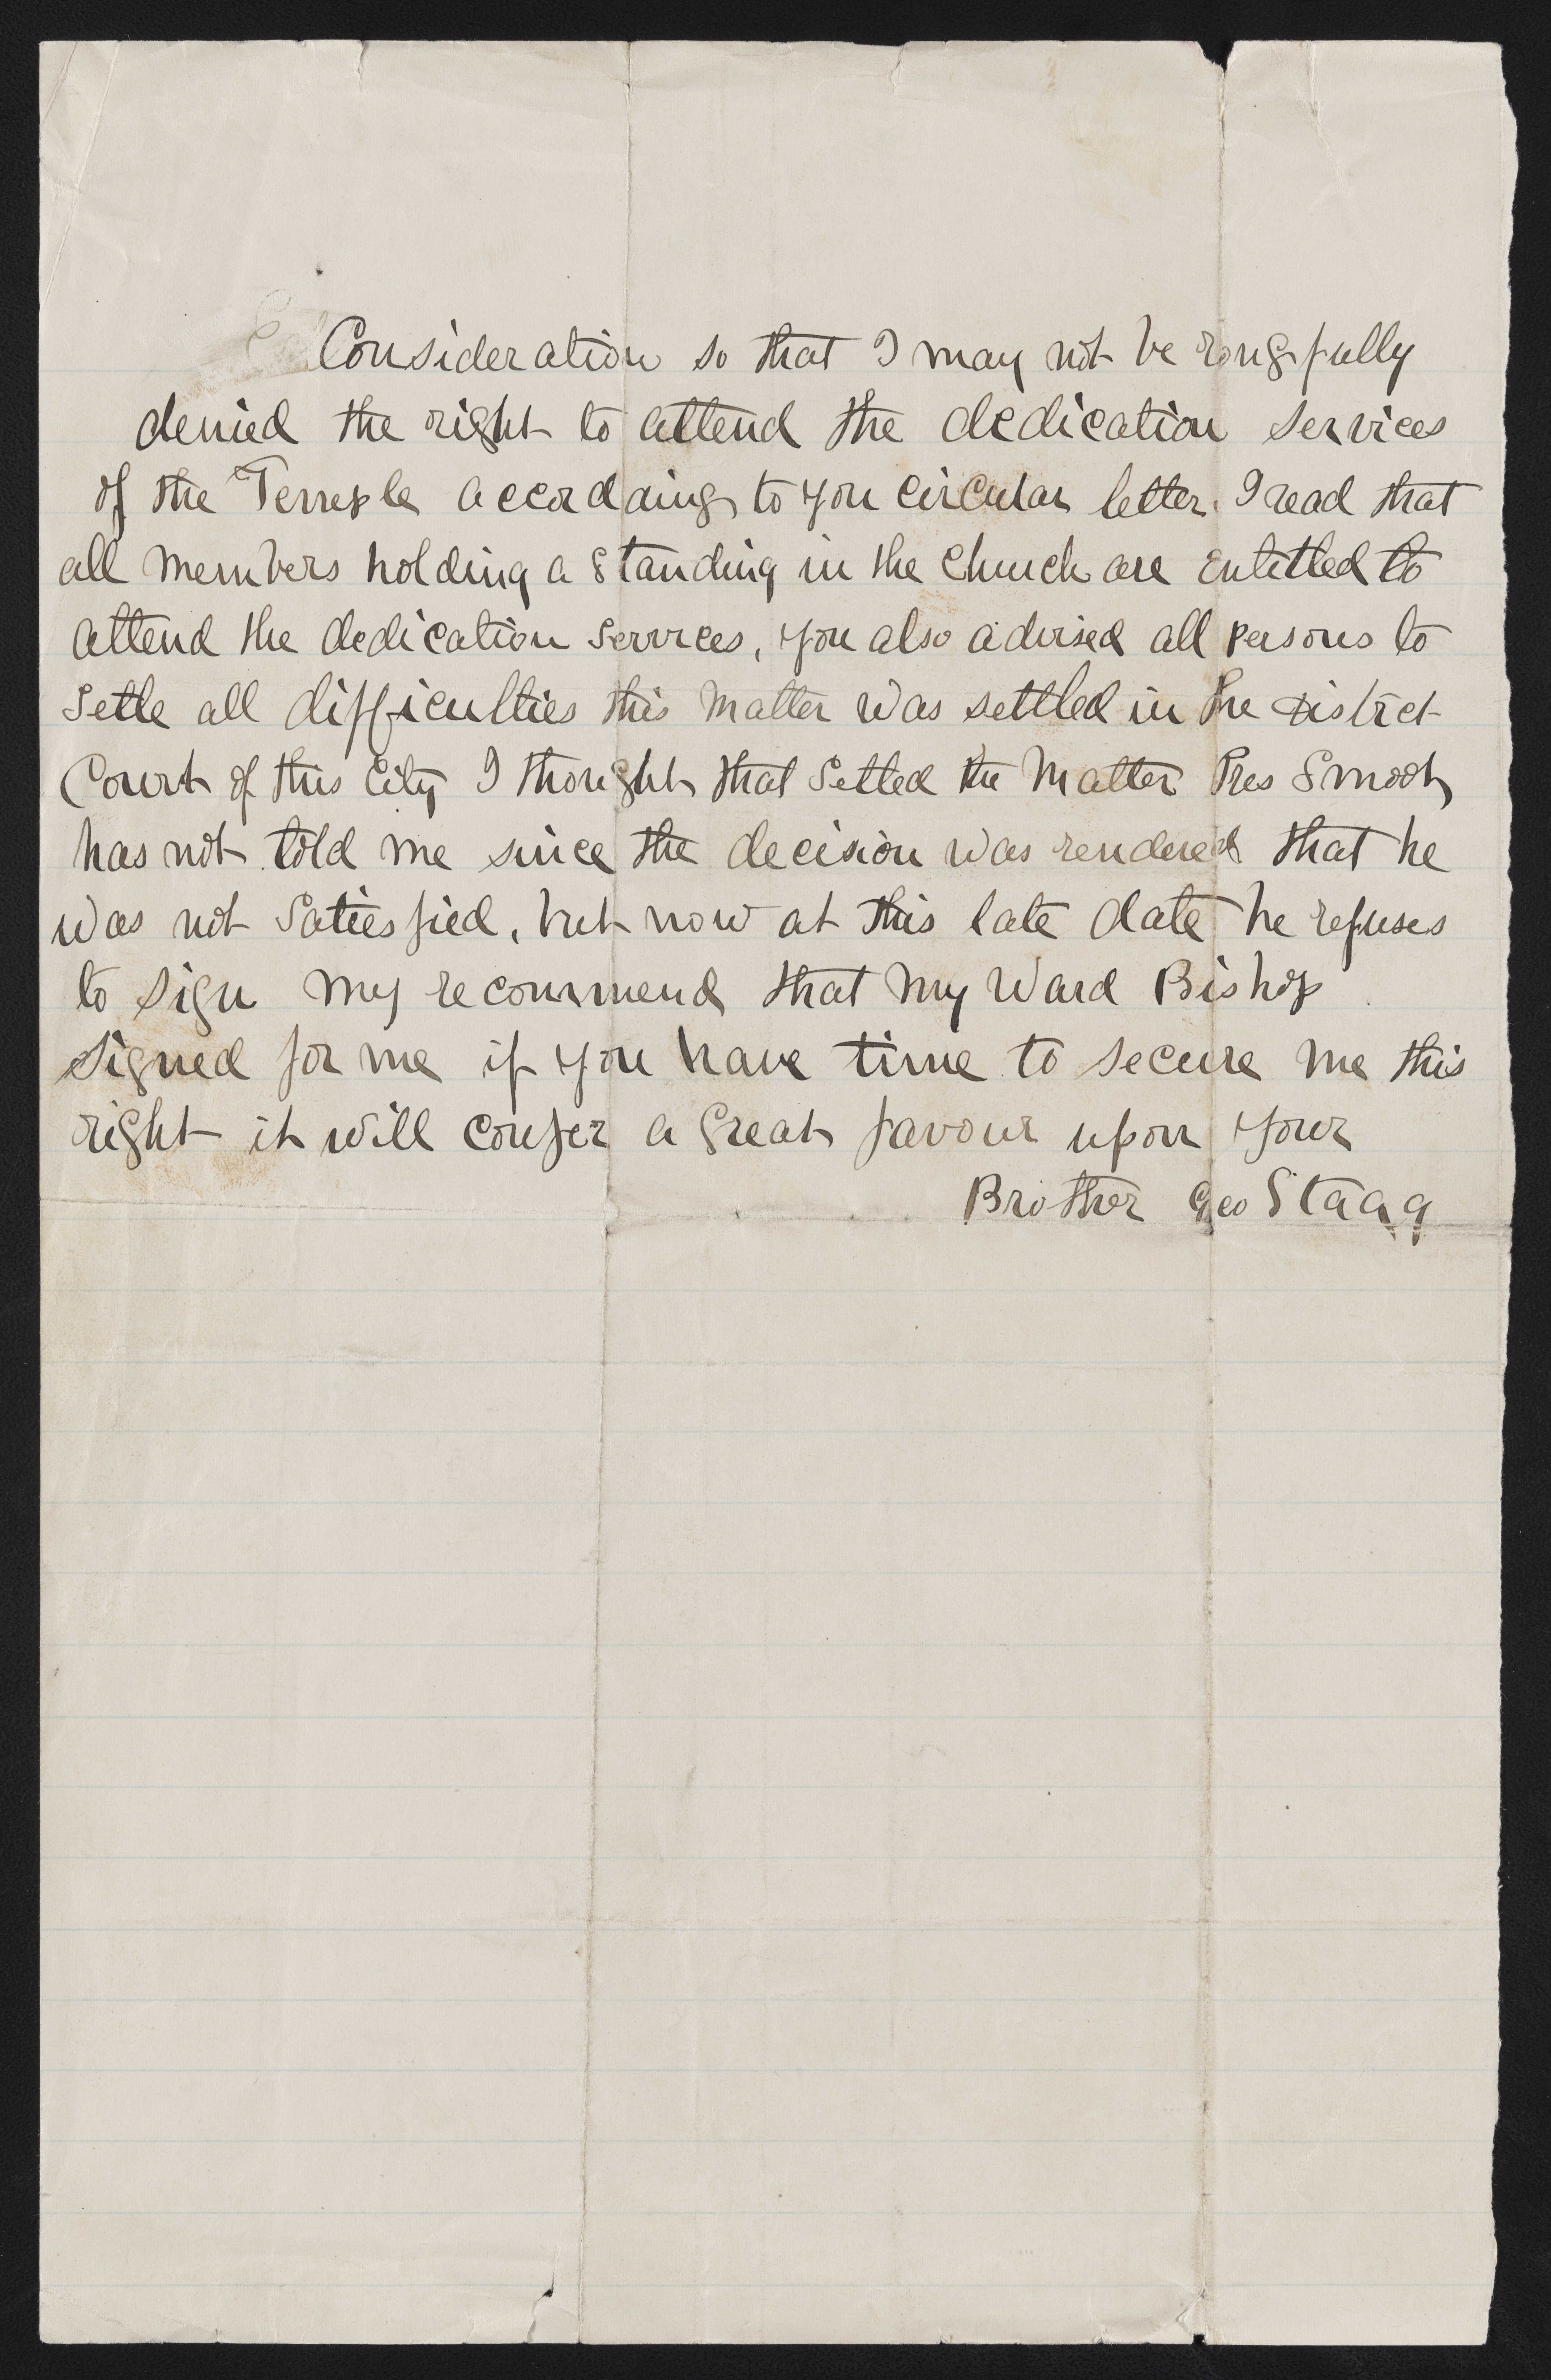 Consideration so that I may not be rongfully
denied the right to attend the dedication services
of the Temple accordaing to you circular letter. I read that
all members holding a standing in the Church are entitled to
attend the dedication services, you also advised all persons to
Setle all difficulties this matter was settled in the District
Court of this City I thought that Setled the Matter Pres Smoot
has not told me since the decision was rendered that he
was not Satiesfied, but now at this late date he refuses
to sign my recommend that my Ward Bishop
signed for me if you have time to secure me this
right it will confer a great favour upon your
Brother Geo Stagg